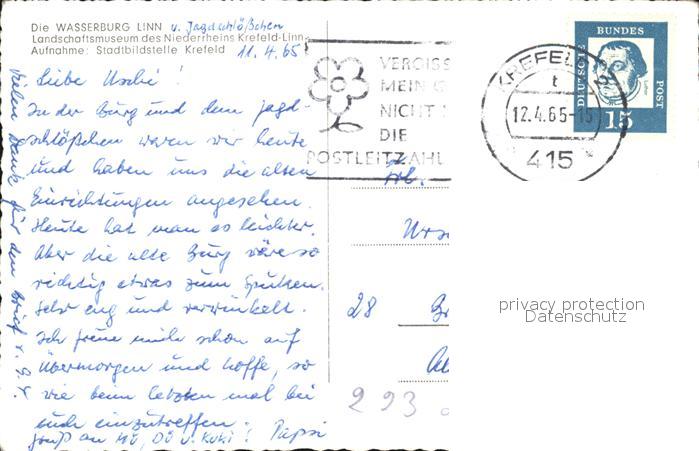 Die WASSERBURG LINN u. Jagdschlößchen
Landschaftsmuseum des Niederrheins Krefeld-Linn
Aufnahme: Stadtbildstelle Krefeld 11.4.65
Liebe Uschi!
In der Burg und dem Jagd-
schlößchen waren wir heute
und haben uns die alten
Einrichtungen angesehen.
Heute hat man es leichter.
Aber die alte Burg wäre so
richtig etwas zum Spuken.
Sehr eng und verwinkelt.
Ich freue mich schon auf
übermorgen und hoffe, so
wie beim letzten mal bei
euch einzutreffen.
Gruß an Mü, Dü u. Kuki! Pappi
Vielen Dank für den Brief v. 9.4.
VERGISS
MEIN
NICHT
DIE
POSTLEITZAHL
KREFELD
t
12.4.65-15
415
DEUTSCHE BUNDES POST
Luther
15
Frl.
Urs
28 Br
223
privacy protection
Datenschutz